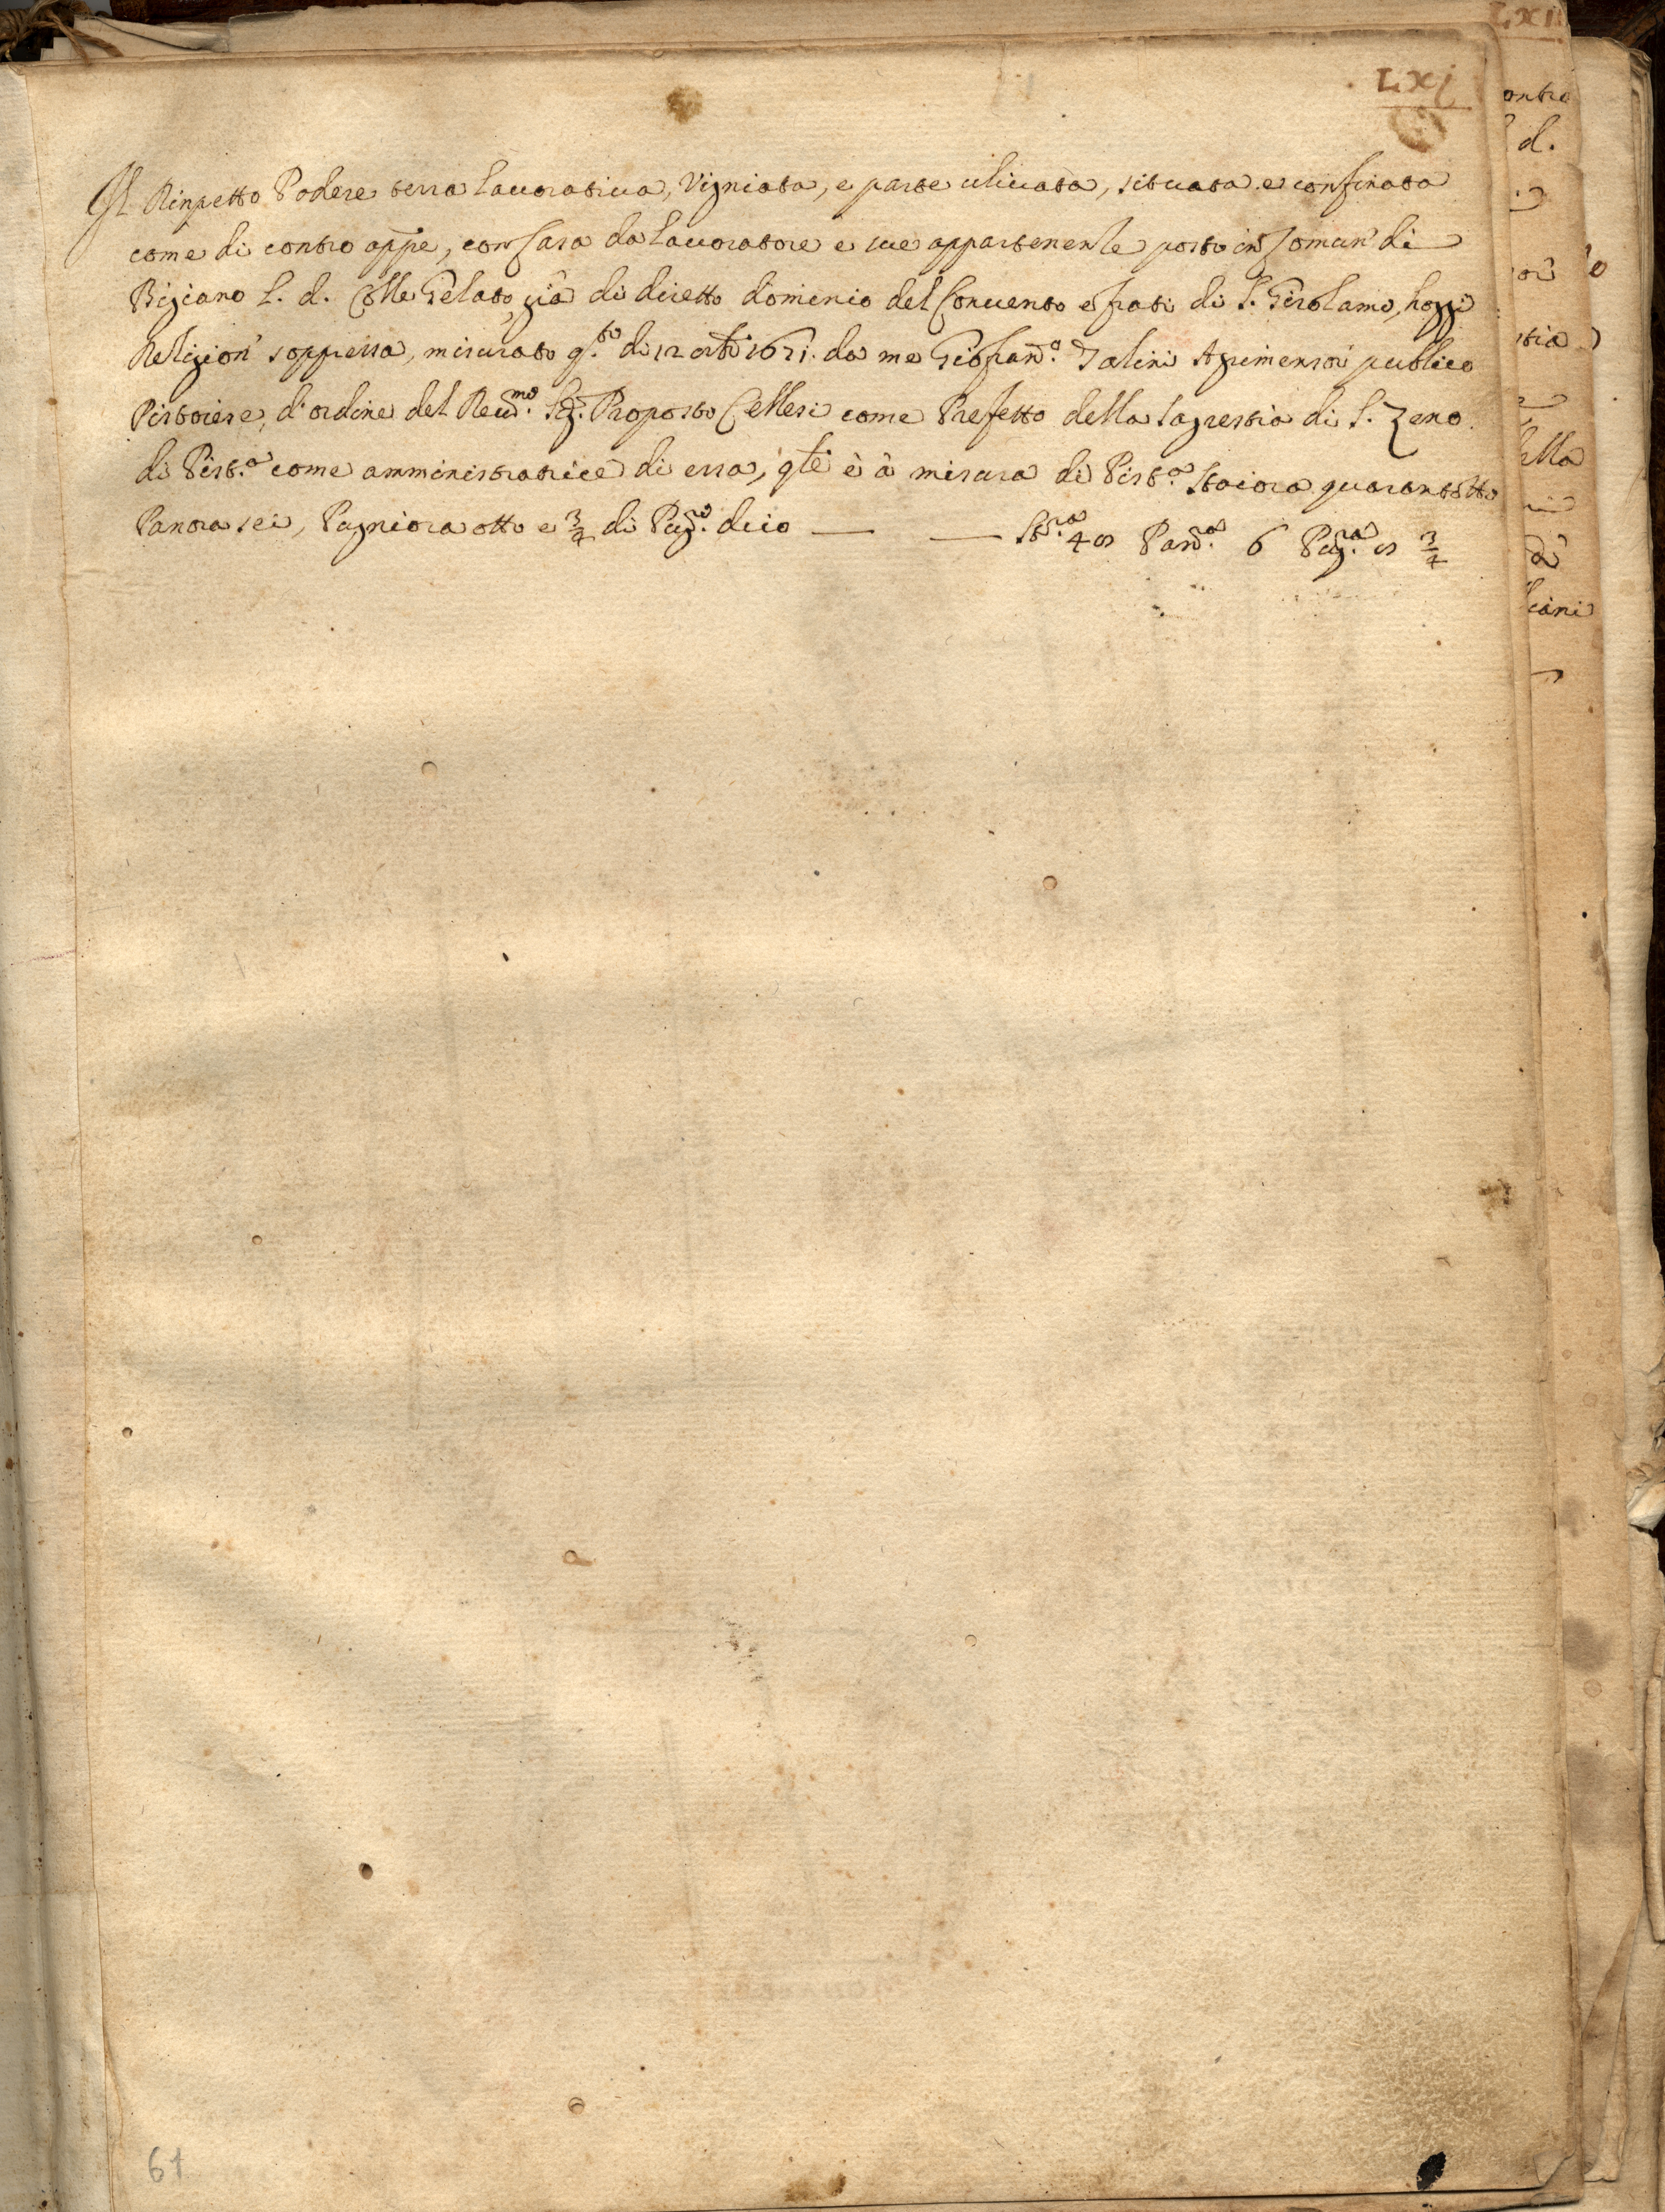 LXI
Il Rinpetto Podere terra lauoratiua, Vigniata, e parte uliuata, situata e confinata
come di contro appe, con Casa da Lauoratore e sue appartenente posto in Comun' di
Bigiano l. d. Colle Gelato, già di diretto dominio del Conuento e frati di S. Girolamo, hoggi
Religion' soppressa, misurato q.to di 12 ottb 1671. da me Giofran.o Talini Agrimensor publico
Pistoiese, d'ordine del Reu.mo Sig.r Proposto Cellesi come Prefetto della Sagrestia di S. Zeno
di Pist.a come amministratrice di essa, qte è à misura di Pist.a Staiora quarantotto
Panora sei, Pugniora otto e 3/4 di Pug.ro dicio — — St.ra 48 Pan.ra 6 Pug.ra 8 3/4
61
LXII
ontro
d.
stia
ella
ciani